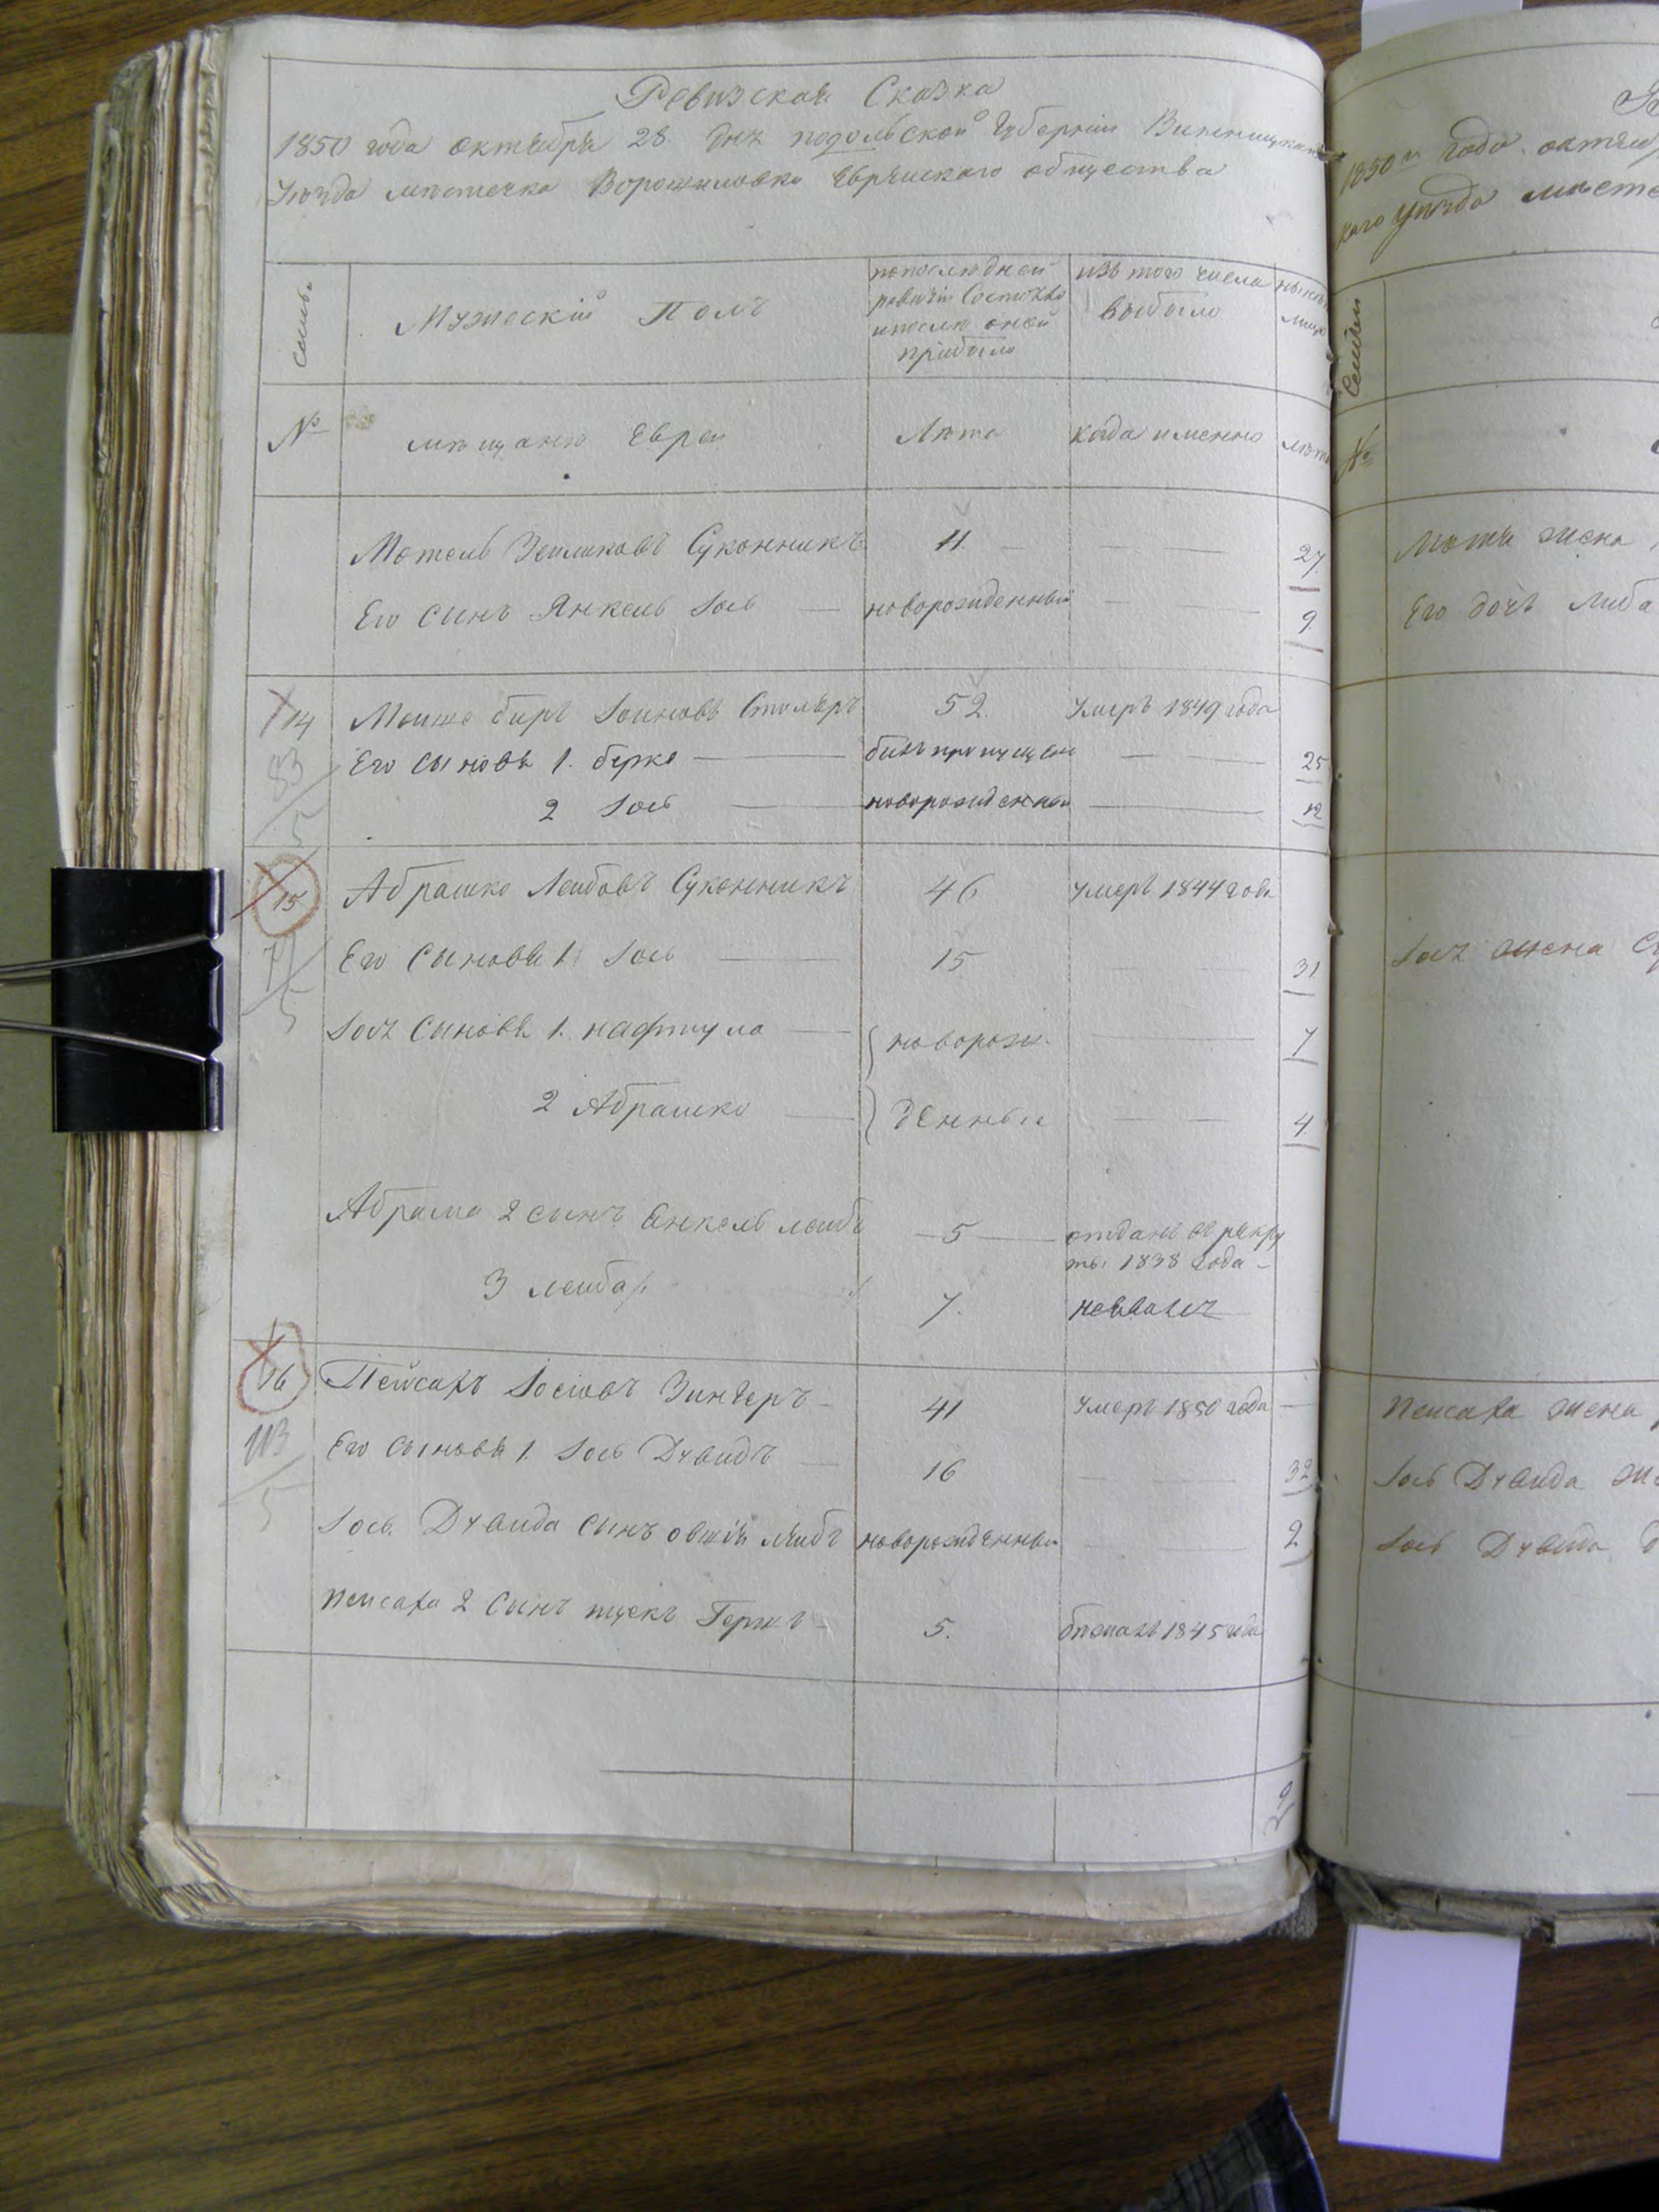 Ревизская Сказка
1850 года октября 28 дня подольской Губернии Винницкаго
Уезда местечка Ворошиловки Еврейскаго общества
Семьи
Мужескій Полъ
по последней
ревизіи Состояло
и после оной
прибыло
изъ того числа
выбыло
ныне
лицо
№
мещане Евреи
Лета
когда именно
лета
Мотель Зейликовъ Суконникъ 11 27
Его сынъ Янкель Іось новорожденный 9
14 Моише биръ Іоиновъ Столяръ 52 умеръ 1849 года
83 Его сыновя 1. берко былъ пропущен 25
5 2 Іось новорожденный 12
15 Абрашко Леибовъ Суконникъ 46 умеръ 1844 года
Его Сыновя 1 Іось 15 31
5
Іося Сыновя 1. нафтула новорож 7
2 Абрашко денные 4
Абрама 2 сынъ Янкель леибъ 5 отданъ в рекру
ты 1838 года
3 леиба 7.
16 Пейсахъ Іосіовъ Зингеръ 41 умеръ 1850 года
113 Его Сыновя 1. Іось Дувидъ 16 32
5 Іось Дувида сынъ овшія Леибъ новорожденный 2
пеисаха 2 Сынъ Гершъ 5. бежалъ 1845 года
9
1850 го года октяб
каго Уезда месте
Семьи
№
жена
Его дочь Либа
Іося жена
Пеисаха жена
Іось Дувида же
Іось Дувида д